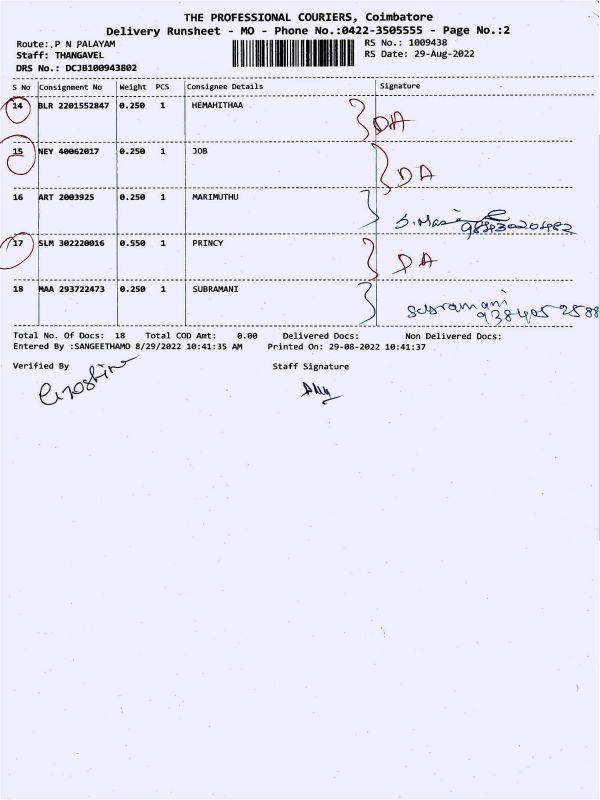 THE PROFESSIONAL COURIERS, Coimbatore
Delivery Runsheet - MO - Phone No.:0422-3505555 - Page No.:2
Route: P N PALAYAM
RS No.: 1009438
Staff: THANGAVEL
RS Date: 29-Aug-2022
DRS No.: DCJB100943802
S No Consignment No Weight PCS Consignee Details Signature
14 BLR 2201552847 0.250 1 HEMAHITHAA DA
15 NEY 40062017 0.250 1 JOB DA
16 ART 2003925 0.250 1 MARIMUTHU
17 SLM 302220016 0.550 1 PRINCY DA
18 MAA 293722473 0.250 1 SUBRAMANI Subramani
Total No. Of Docs: 18 Total COD Amt: 0.00 Delivered Docs: Non Delivered Docs:
Entered By :SANGEETHAMO 8/29/2022 10:41:35 AM Printed On: 29-08-2022 10:41:37
Verified By Staff Signature